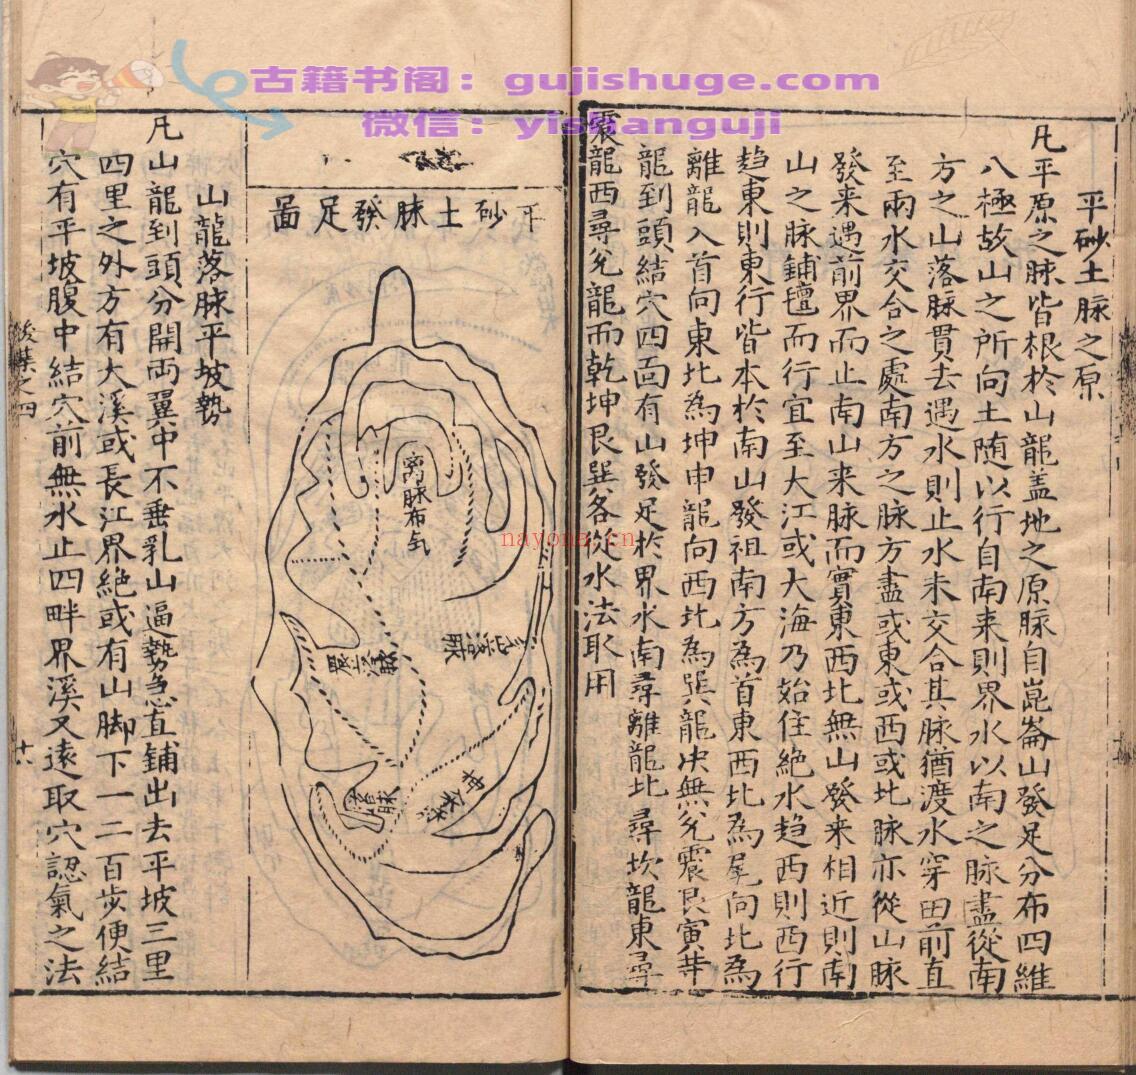 古籍书阁：gujishuge.com
微信：yishanguji
平砂土脉之原
凡平原之脉皆根於山龍盖地之原脉自崑崙山發足分布四維
八極故山之所向土随以行自南来則界水以南之脉盡從南
方之山落脉貫去遇水則止水未交合其脉猶渡水穿田前直
至兩水交合之處南方之脉方盡或東或西或北脉亦從山脉
發来遇前界而止南山来脉而實東西北無山發来相近則南
山之脉鋪氊而行宜至大江或大海乃始住絶水趋西則西行
趋東則東行皆本於南山發祖南方為首東西北為尾向北為
離龍入首向東北為坤申龍向西北為巽龍决無兊震艮寅廿
龍到頭結穴四面有山發足於界水南尋離龍北尋坎龍東尋
震龍西尋兊龍而乾坤艮巽各從水法取用
nayona.cn
平砂土脉發足啚
离脉布气
巽落脉
落脉
坤
山龍落脉平坡勢
凡山龍到頭分開両翼中不垂乳山逼勢急直鋪出去平坡三里
四里之外方有大溪或長江界絶或有山脚下一二百步便結
穴有平坡腹中結穴前無水止四畔界溪又遠取穴認氣之法
後集之四
十六